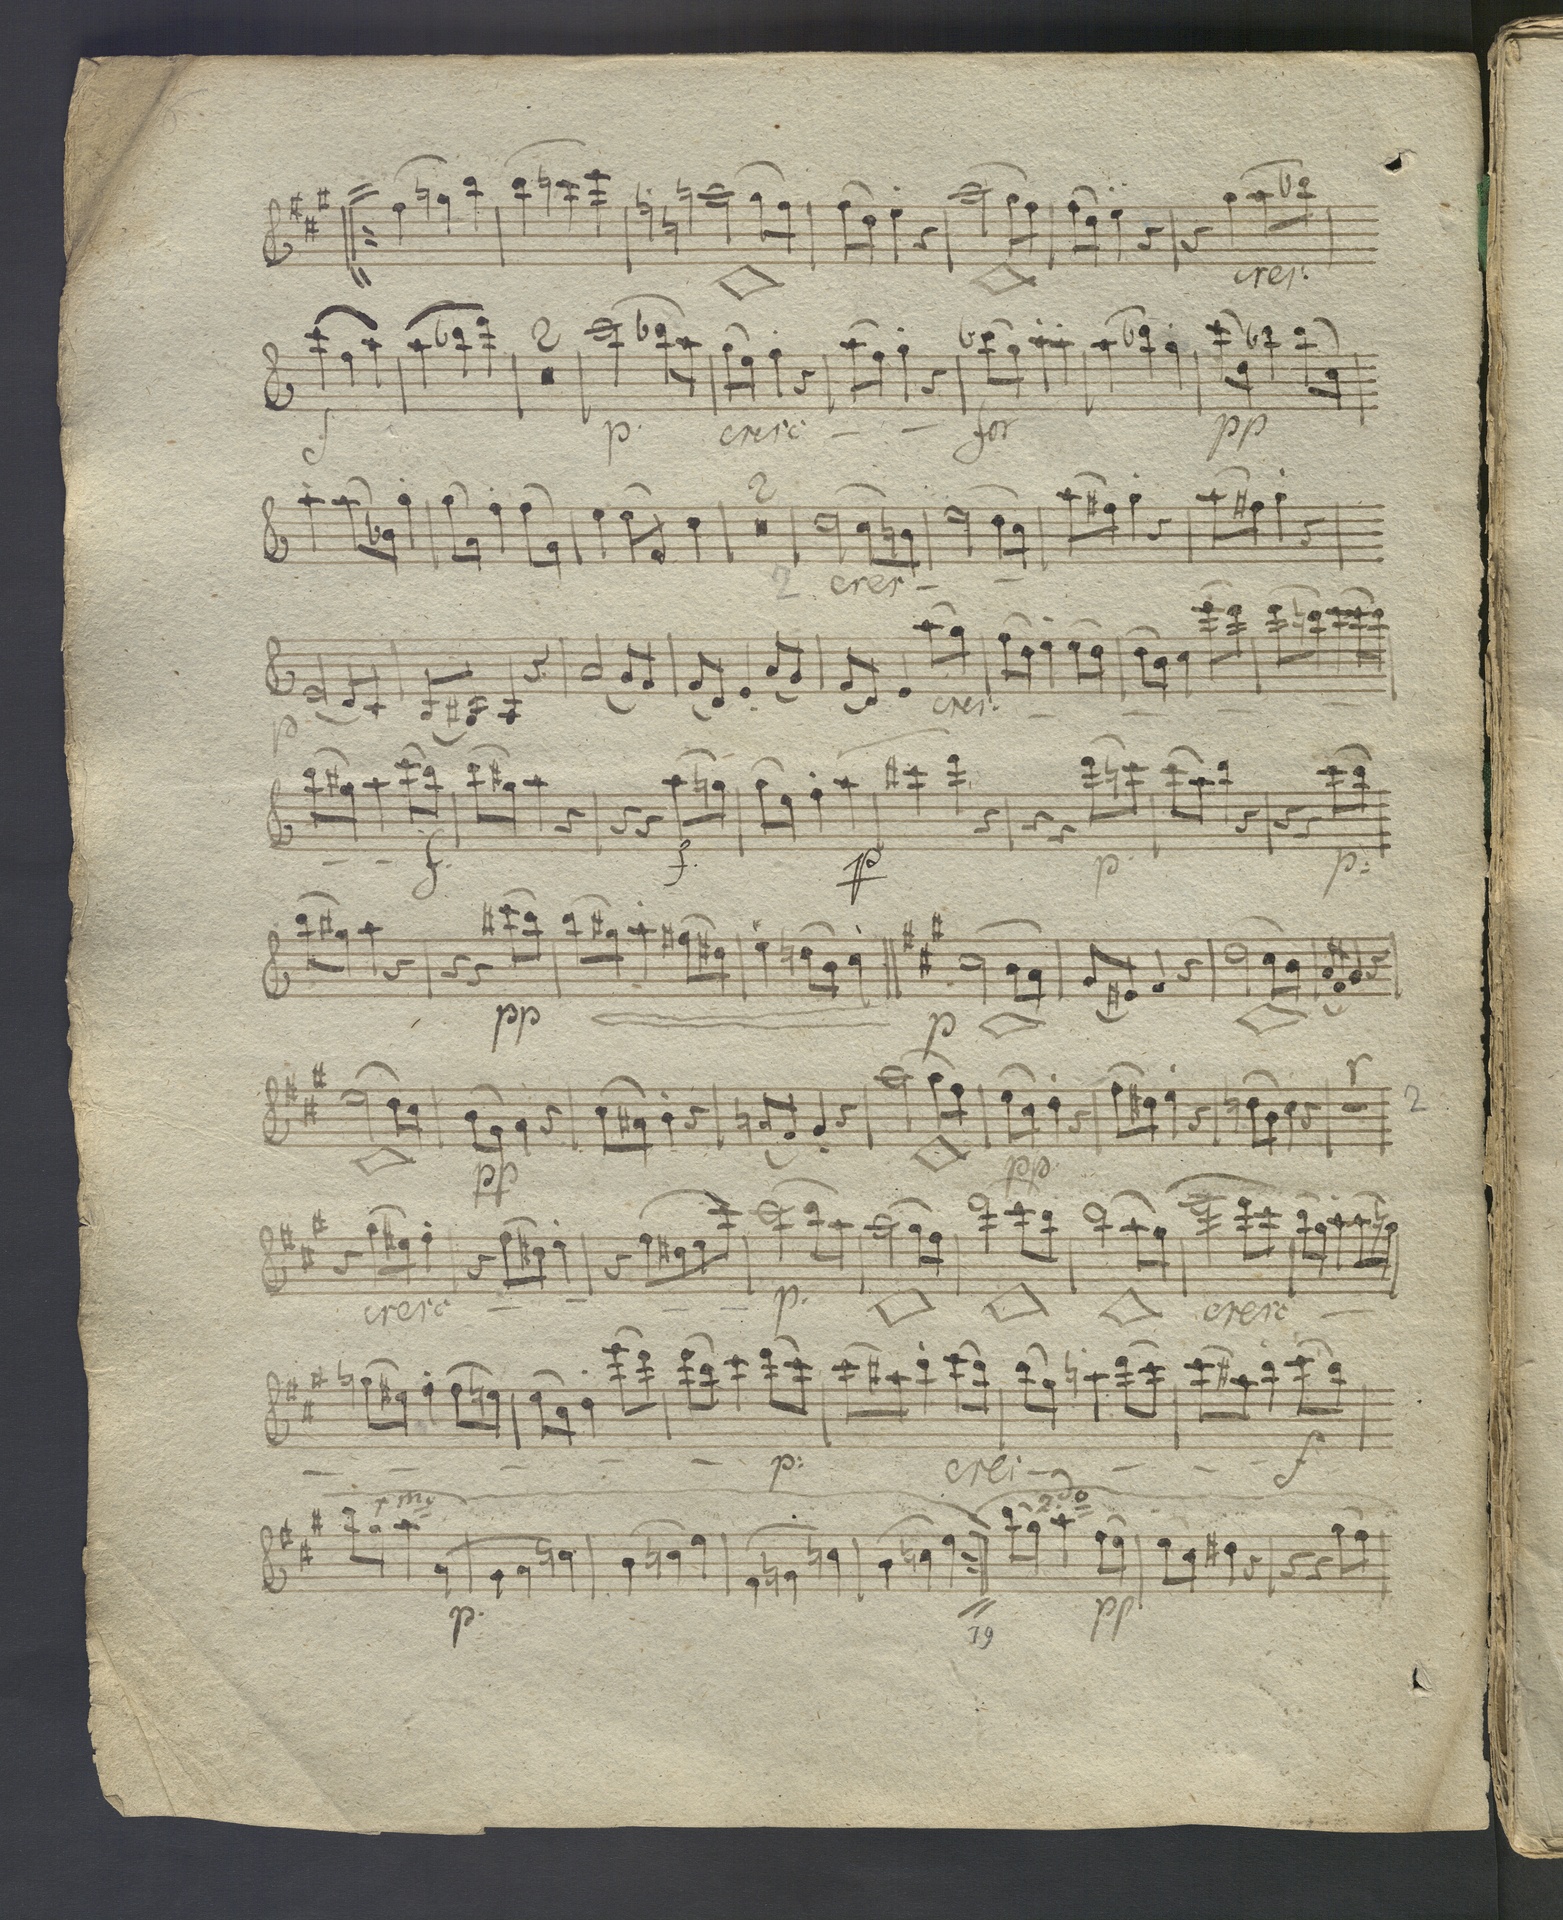 cres:
2
f p. cresc for pp
2
2 cres
p cres:
f. f. fp p. p:
pp p
r 2
pp pp.
cresc p. cresc
p: cres f
1mo 2do
p. pp
19